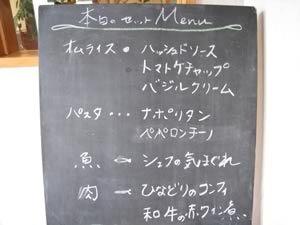 本日のセット Menu
オムライス ● ハッシュドソース
トマトケチャップ
バジルクリーム
パスタ・・・ナポリタン
ペペロンチーノ
魚 シェフの気まぐれ
肉 ひなどりのコンフィ
和牛の赤ワイン煮